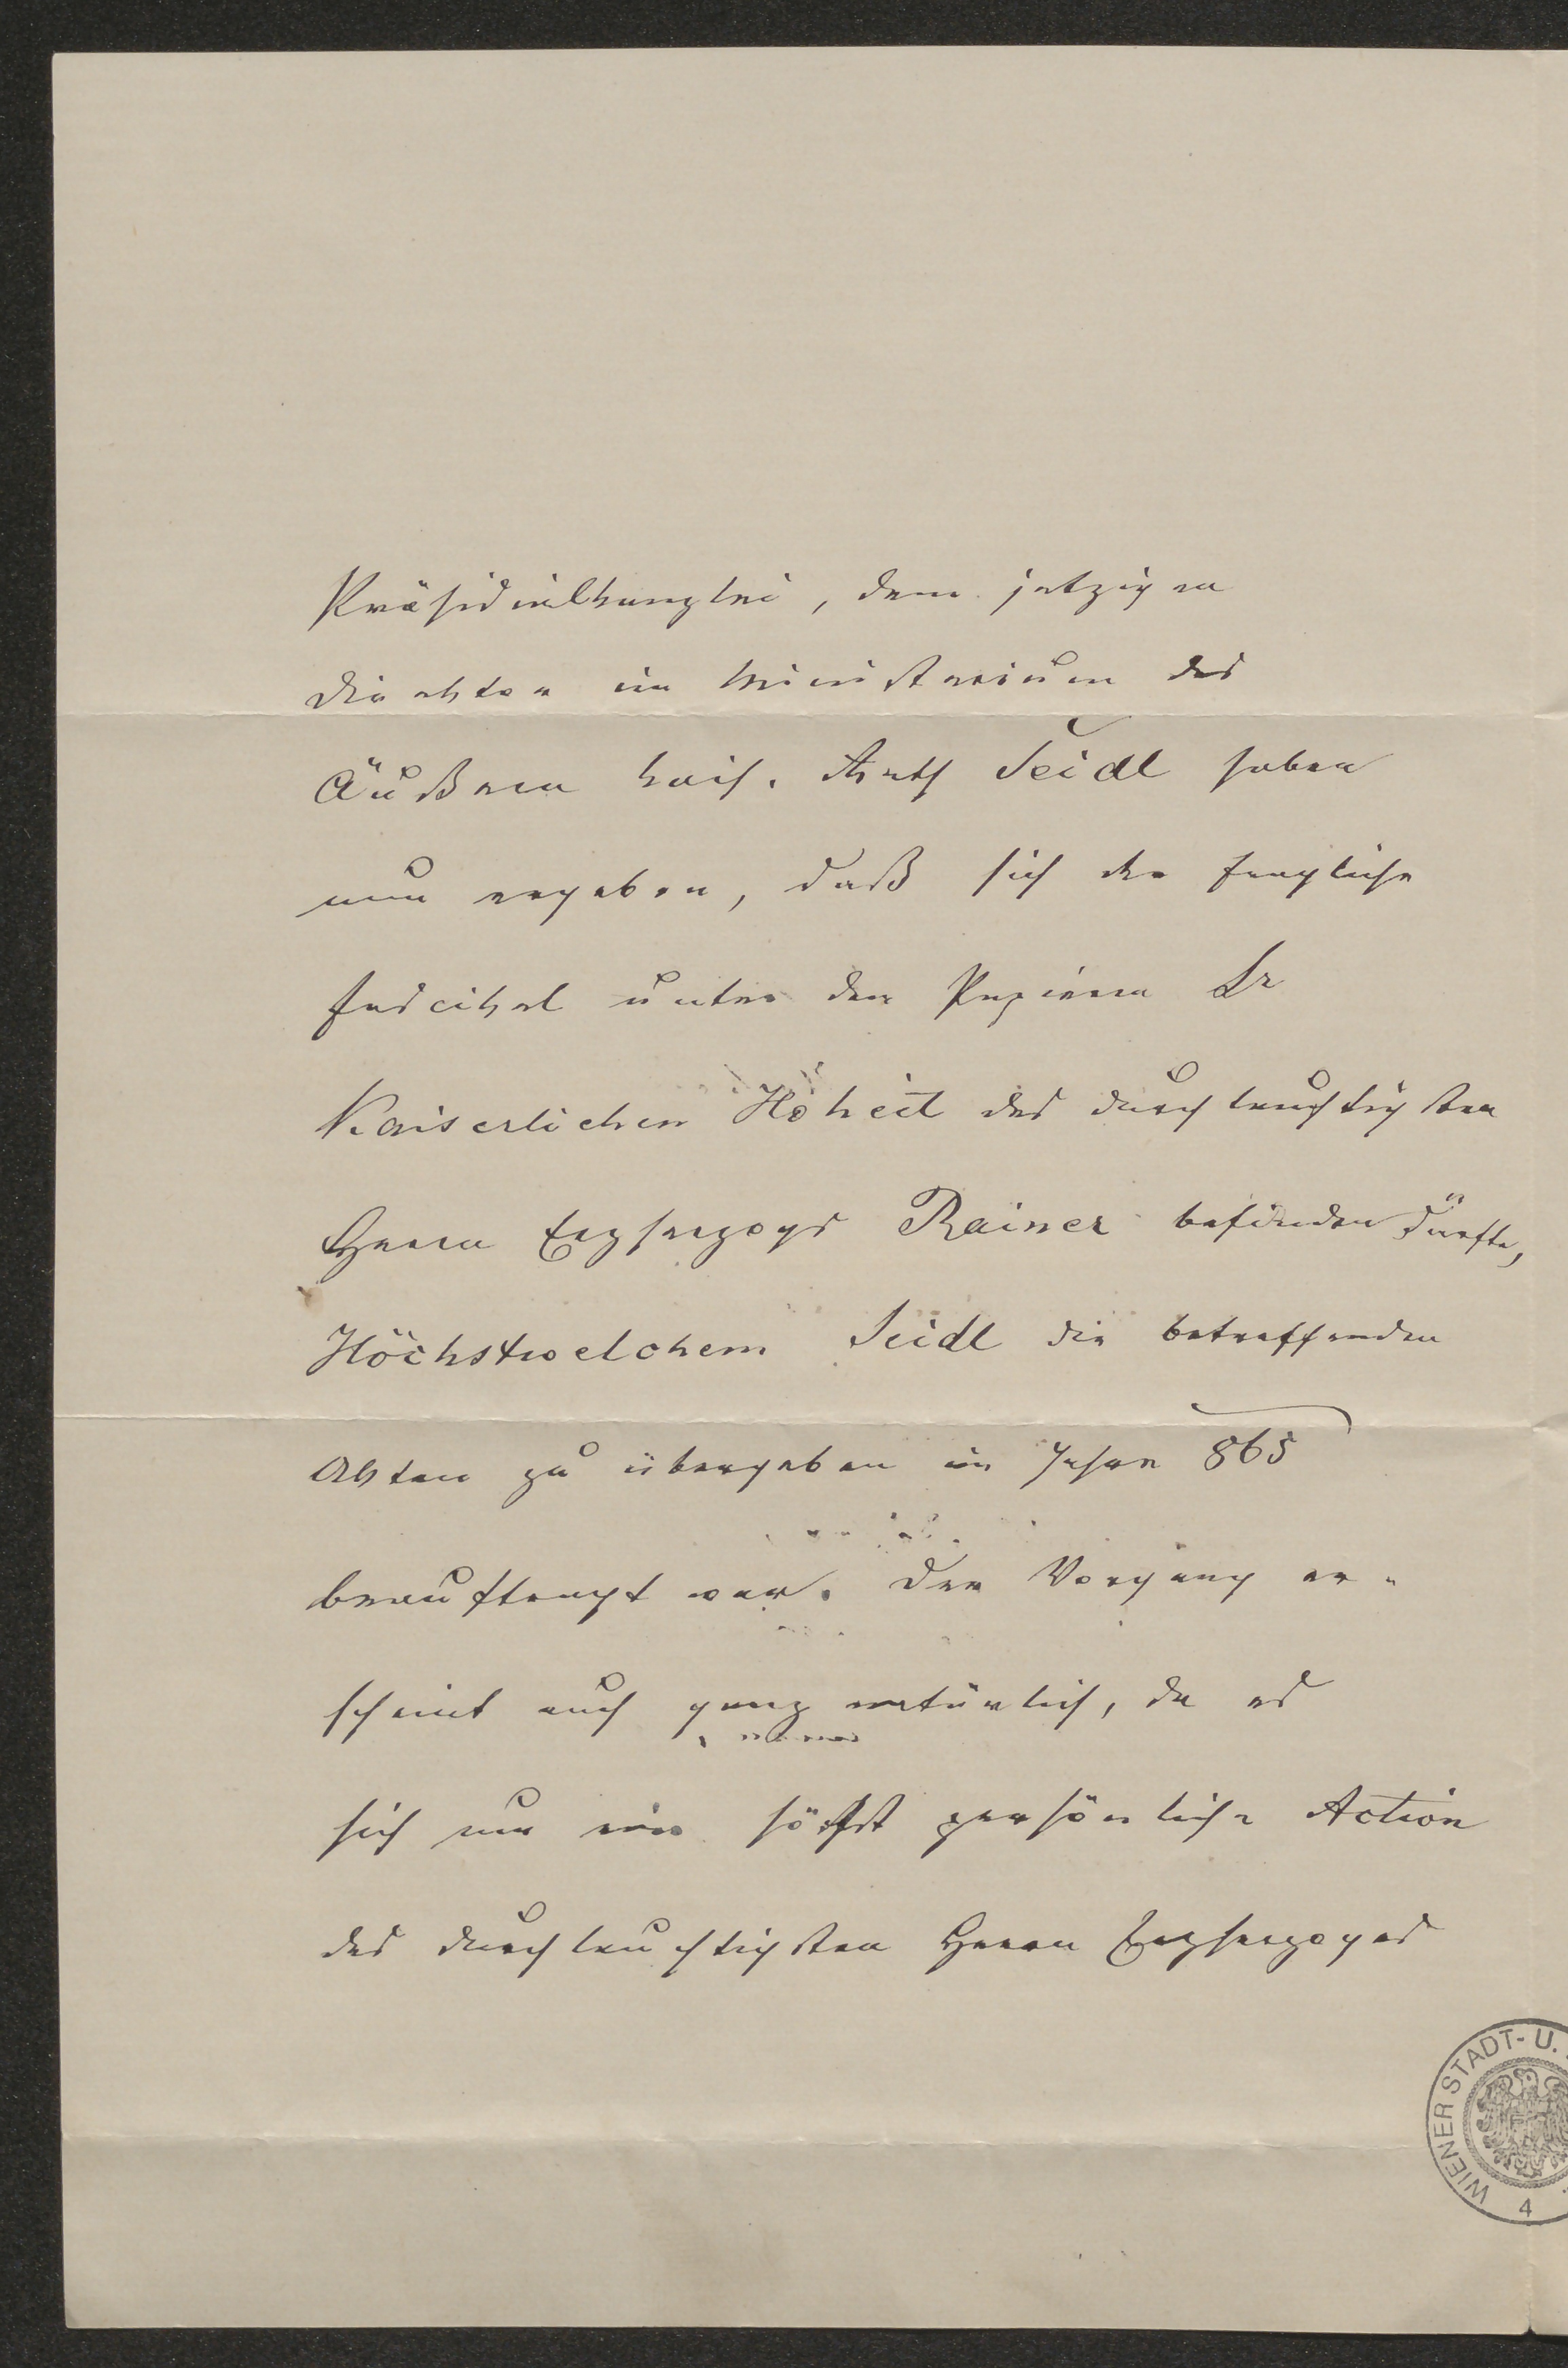 Präsidialkanzlei, dem jetzigen
Direktor im Ministerium des
Äußern kais. Rath Seidl haben
nun ergeben, daß sich der fragliche
Fascikel unter den Papieren Sr
Kaiserlichen Hoheit des durchlauchtigsten
Herrn Erzherzogs Rainer befinden dürfte,
Höchstwelchem Seidl die betreffenden
Akten zu übergeben im Jahre 865
beauftragt war. Der Vorgang er-
scheint auch ganz natürlich, da es
sich um eine höchst persönliche Action
des durchlauchtigsten Herrn Erzherzoges
WIENER STADT- U.
4